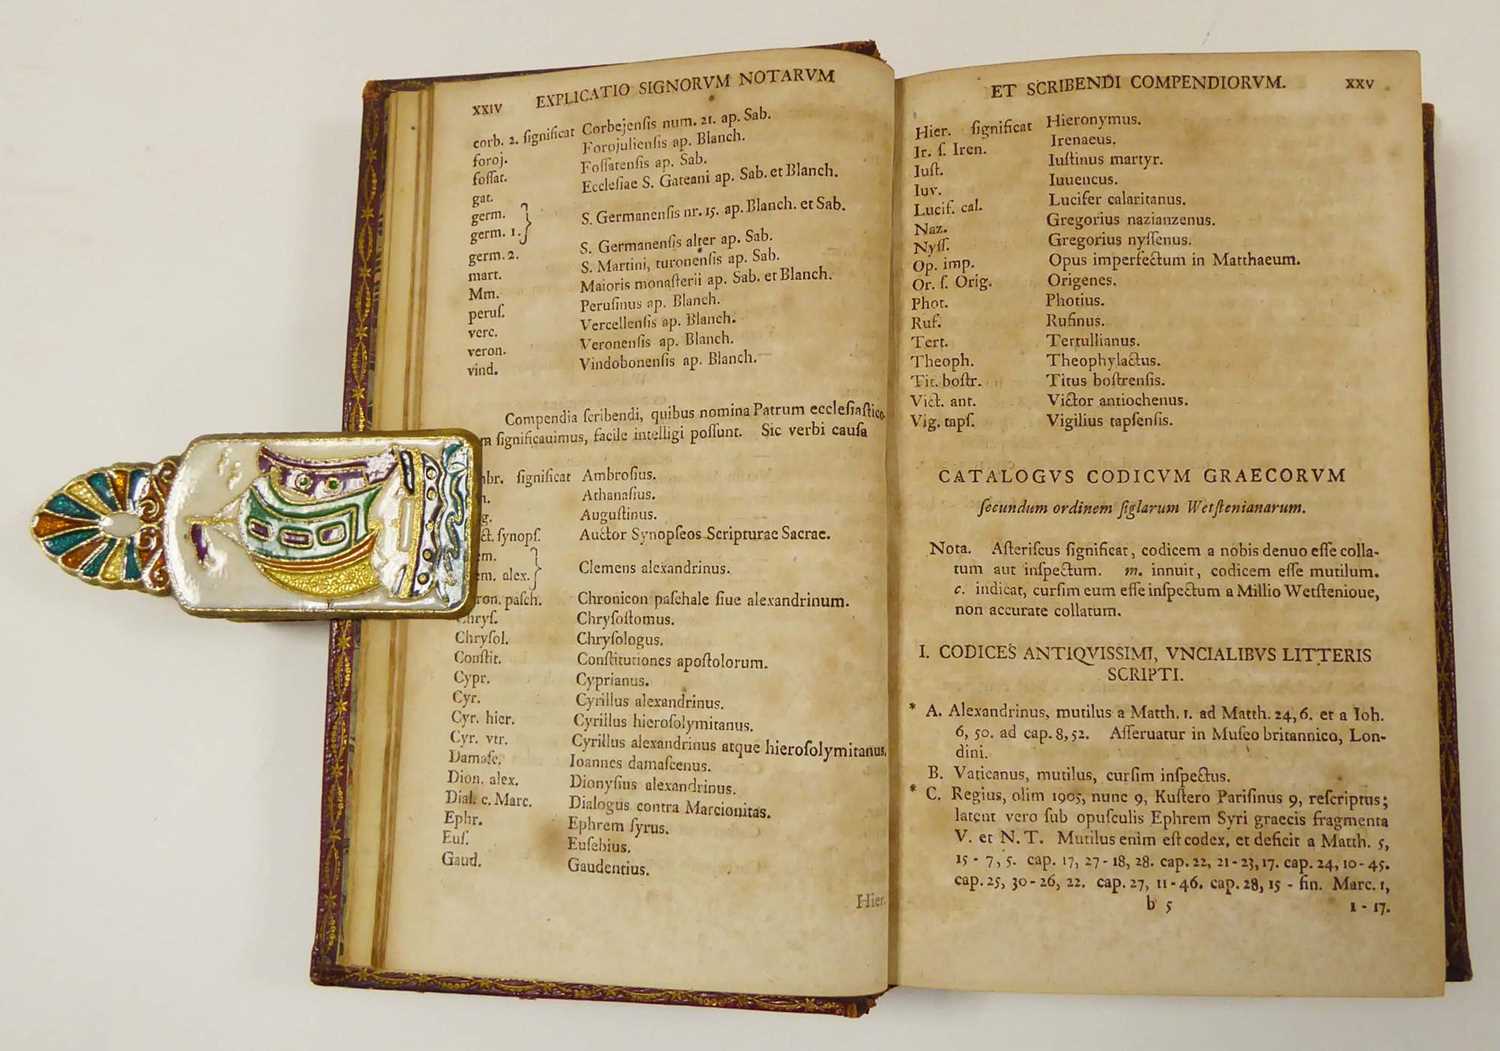 XXIV EXPLICATIO SIGNORVM NOTARVM
corb. 2. ſignificat Corbejenſis num. 21. ap. Sab.
foroj. Forojulienſis ap. Blanch.
foſſat. Foſſatenſis ap. Sab.
gat. Eccleſiae S. Gateani ap. Sab. et Blanch.
germ.
germ. 1. } S. Germanenſis nr. 15. ap. Blanch. et Sab.
germ. 2. S. Germanenſis alter ap. Sab.
mart. S. Martini, turonenſis ap. Sab.
Mm. Maioris monaſterii ap. Sab. et Blanch.
peruſ. Peruſinus ap. Blanch.
verc. Vercellenſis ap. Blanch.
veron. Veronenſis ap. Blanch.
vind. Vindobonenſis ap. Blanch.
Compendia ſcribendi, quibus nomina Patrum eccleſiaſtico-
ſignificauimus, facile intelligi poſſunt. Sic verbi cauſa
br. ſignificat Ambroſius.
Athanaſius.
g. Auguſtinus.
ct. ſynopſ. Auctor Synopſeos Scripturae Sacrae.
em.
em. alex. } Clemens alexandrinus.
ron. paſch. Chronicon paſchale ſiue alexandrinum.
Chryſ. Chryſoſtomus.
Chryſol. Chryſologus.
Conſtit. Conſtitutiones apoſtolorum.
Cypr. Cyprianus.
Cyr. Cyrillus alexandrinus.
Cyr. hier. Cyrillus hieroſolymitanus.
Cyr. vtr. Cyrillus alexandrinus atque hieroſolymitanus.
Damaſc. Ioannes damaſcenus.
Dion. alex. Dionyſius alexandrinus.
Dial. c. Marc. Dialogus contra Marcionitas.
Ephr. Ephrem ſyrus.
Euſ. Euſebius.
Gaud. Gaudentius.
Hier.
ET SCRIBENDI COMPENDIORVM. XXV
Hier. ſignificat Hieronymus.
Ir. ſ. Iren. Irenaeus.
Iuſt. Iuſtinus martyr.
Iuv. Iuuencus.
Lucif. cal. Lucifer calaritanus.
Naz. Gregorius nazianzenus.
Nyſſ. Gregorius nyſſenus.
Op. imp. Opus imperfectum in Matthaeum.
Or. ſ. Orig. Origenes.
Phot. Photius.
Ruf. Rufinus.
Tert. Tertullianus.
Theoph. Theophylactus.
Tit. boſtr. Titus boſtrenſis.
Vict. ant. Victor antiochenus.
Vig. tapſ. Vigilius tapſenſis.
CATALOGVS CODICVM GRAECORVM
ſecundum ordinem ſiglarum Wetſtenianarum.
Nota. Aſteriſcus ſignificat, codicem a nobis denuo eſſe colla-
tum aut inſpectum. m. innuit, codicem eſſe mutilum.
c. indicat, curſim eum eſſe inſpectum a Millio Wetſtenioue,
non accurate collatum.
I. CODICES ANTIQVISSIMI, VNCIALIBVS LITTERIS
SCRIPTI.
* A. Alexandrinus, mutilus a Matth. 1. ad Matth. 24, 6. et a Ioh.
6, 50. ad cap. 8, 52. Aſſeruatur in Muſeo britannico, Lon-
dini.
B. Vaticanus, mutilus, curſim inſpectus.
* C. Regius, olim 1905, nunc 9, Kuſtero Pariſinus 9, reſcriptus;
latent vero ſub opuſculis Ephrem Syri graecis fragmenta
V. et N. T. Mutilus enim eſt codex, et deficit a Matth. 5,
15 - 7, 5. cap. 17, 27 - 18, 28. cap. 22, 21 - 23, 17. cap. 24, 10 - 45.
cap. 25, 30 - 26, 22. cap. 27, 11 - 46. cap. 28, 15 - fin. Marc. 1,
b 5 1 - 17.